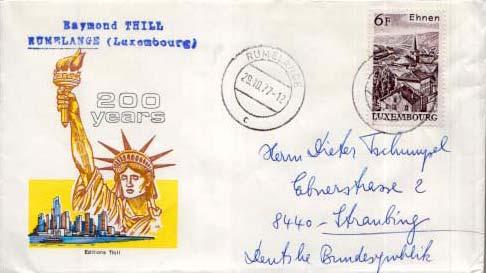 Raymond THILL
RUMELANGE (Luxembourg)
200
years
Editions Thill
RUMELANGE
29.10.77-12
C
6F Ehnen
LUXEMBOURG
Herrn Dieter Tschimpel
Ebnerstrasse 2
8440 - Straubing
Deutsche Bundesrepublik